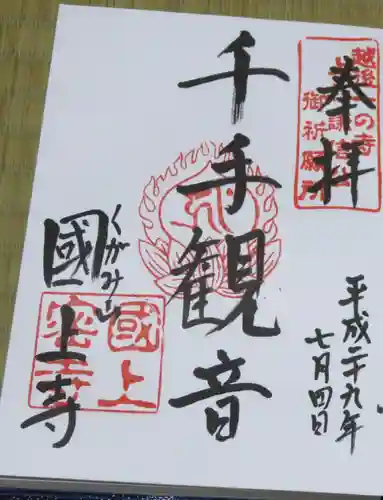 奉拝
越後一の寺
御祈願所
千手観音
平成二十九年
七月四日
くがみ山
國上寺
國上